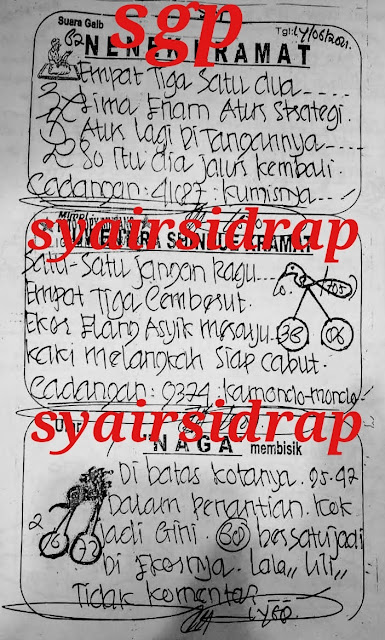 Suara Gaib
Tgl: 14/06/2021.
62
NENEK KRAMAT
sgp
Empat Tiga Satu dua
Lima Enam Atur Strategi.
Atur lagi Di Tangannya
So Itu dia jalur kembali.
Cadangan: 4687: kumisnya
syairsidrap
KRAMAT
Satu-Satu jangan Ragu
Empat Tiga Cemberut.
Ekor Elang Asyik
kaki melangkah Siap Cabut.
38
06
Cadangan: 0374.
syairsidrap
NAGA membisik
Di batas kotanya. 95-42
Dalam penantian. Kok
jadi Gini. 60 bersatu jadi
Di Ekornya. lala,, lili,,
Tidak komentar